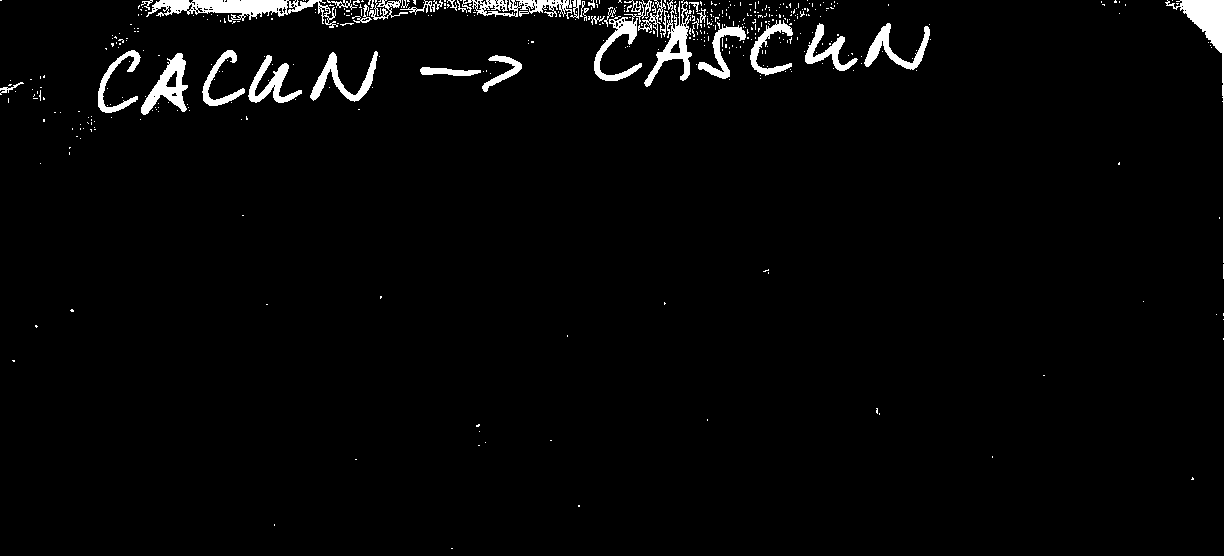 CACUN → CASCUN